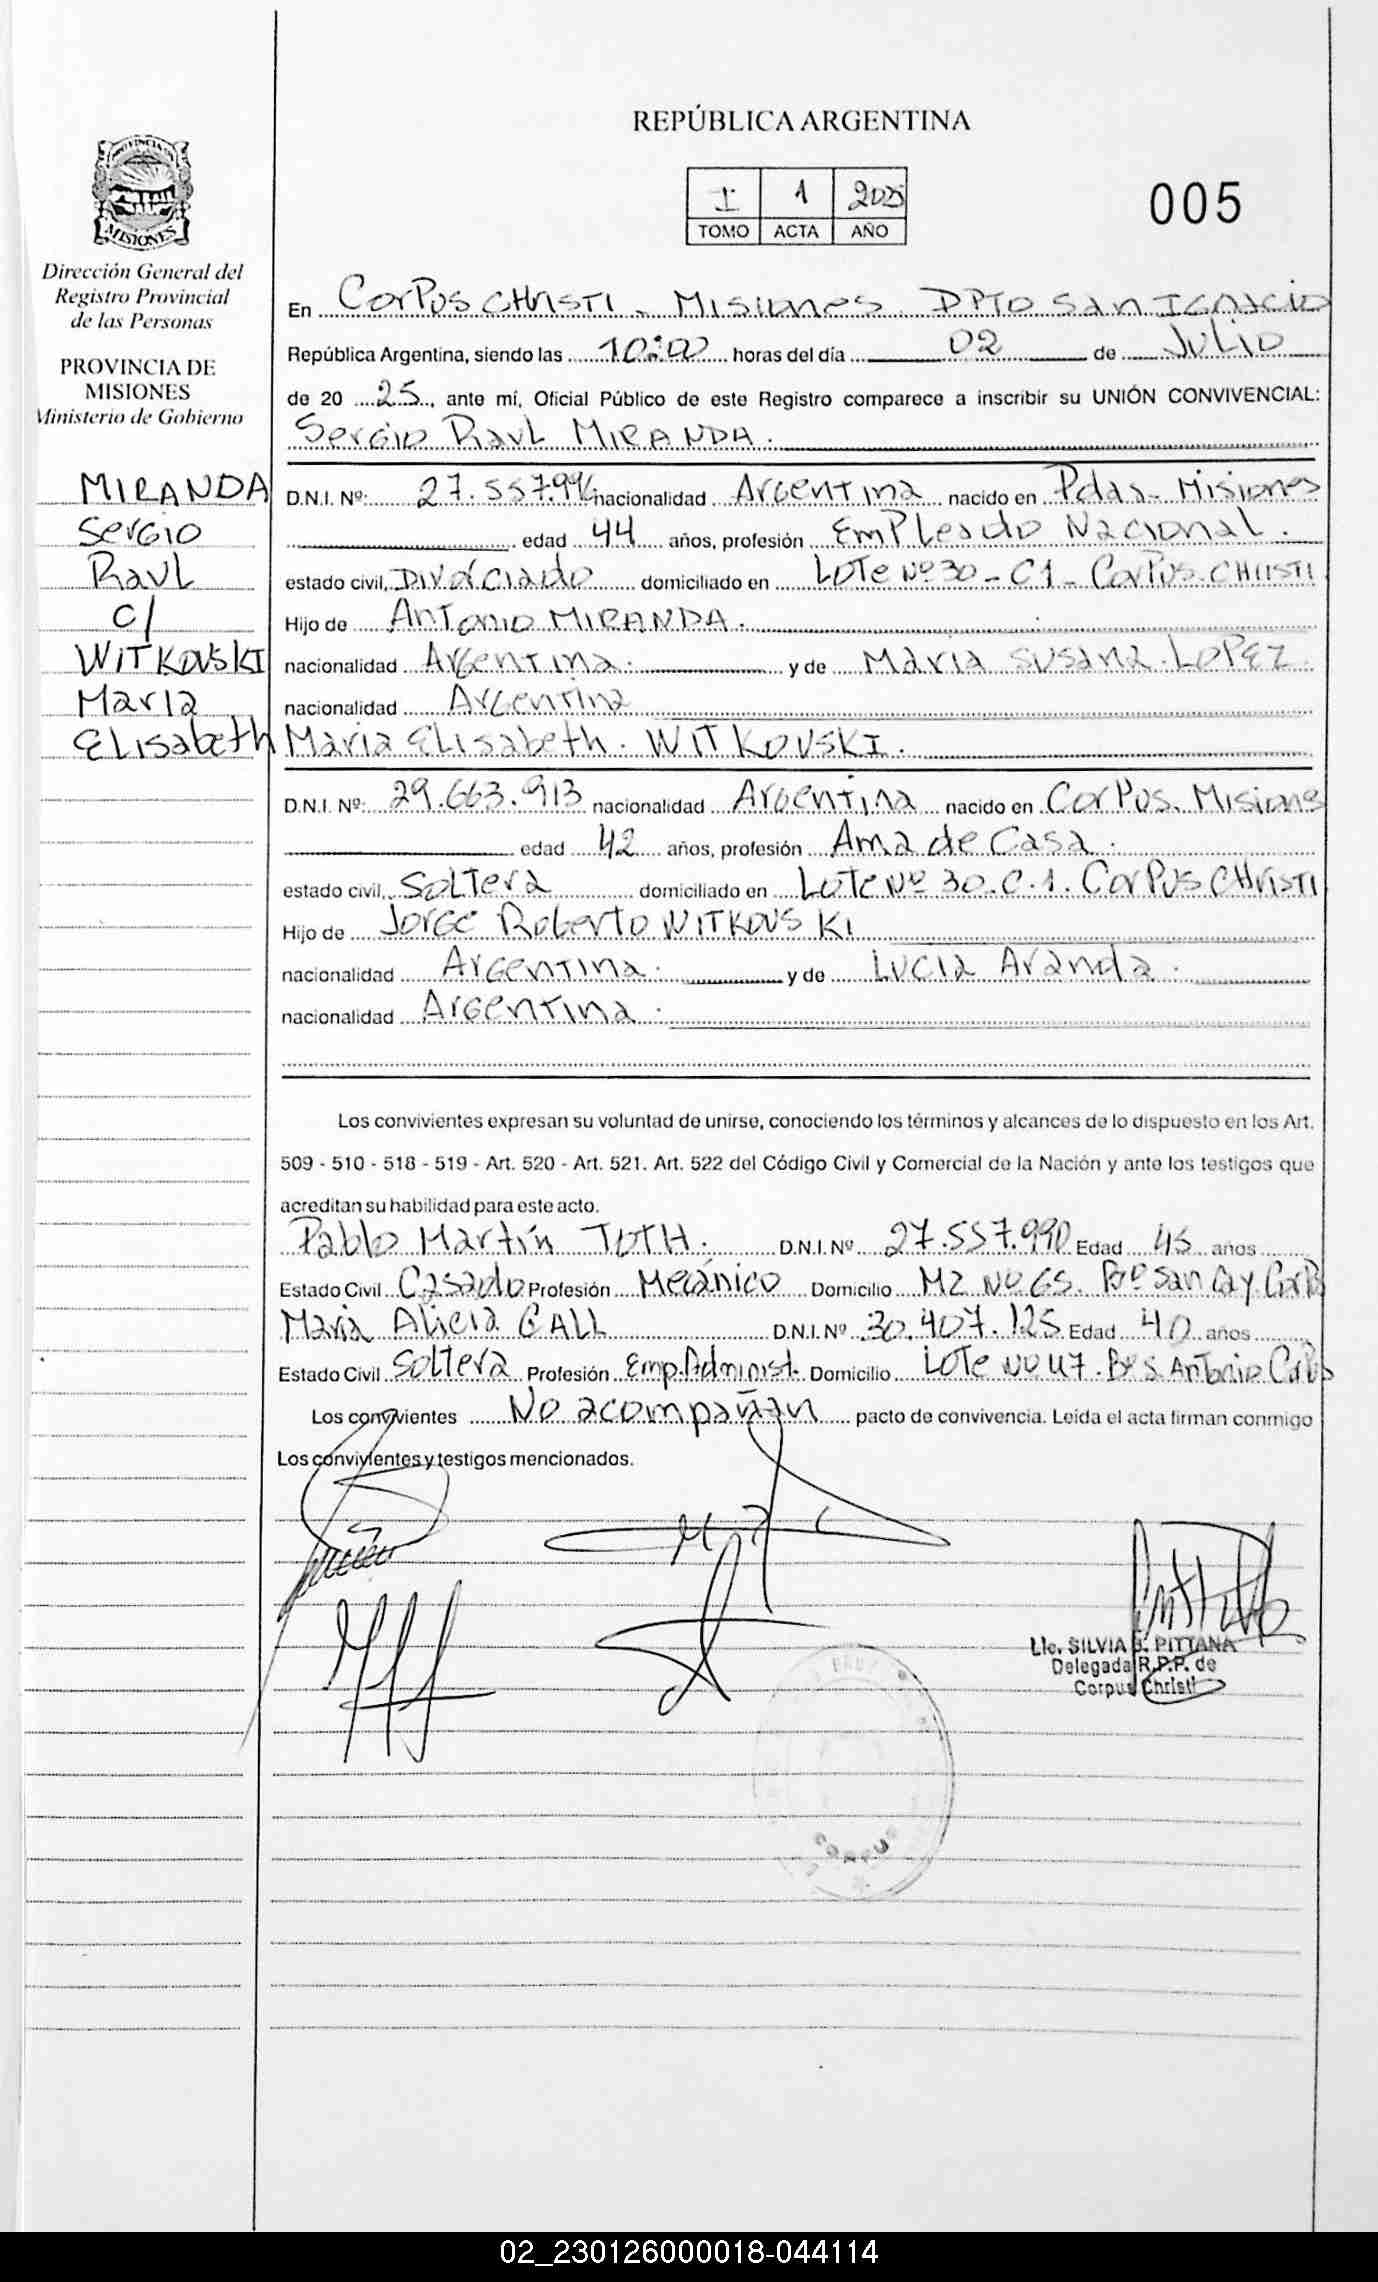 REPÚBLICA ARGENTINA
I 1 2025
TOMO ACTA AÑO
005
PROVINCIA DE
MISIONES
Dirección General del
Registro Provincial
de las Personas
PROVINCIA DE
MISIONES
Ministerio de Gobierno
MIRANDA
Sergio
Raul
c/
WITKOVSKI
Maria
Elisabeth
En Corpus Christi - Misiones. DPTO San Ignacio
República Argentina, siendo las 10:00 horas del día 02 de Julio
de 20 25, ante mí, Oficial Público de este Registro comparece a inscribir su UNIÓN CONVIVENCIAL:
Sergio Raul MIRANDA.
D.N.I. Nº: nacionalidad Argentina nacido en Pdas - Misiones
edad 44 años, profesión Empleado Nacional.
estado civil, Divorciado domiciliado en Lote Nº 30 - C1 - Corpus Christi
Hijo de Antonio MIRANDA.
nacionalidad Argentina. y de Maria Susana LOPEZ.
nacionalidad Argentina
Maria Elisabeth. WITKOVSKI.
D.N.I. Nº: 29.663.913 nacionalidad Argentina nacido en Corpus. Misiones
edad 42 años, profesión Ama de Casa.
estado civil, Soltera domiciliado en Lote Nº 30. C. 1. Corpus Christi
Hijo de Jorge Roberto WITKOVSKI
nacionalidad Argentina. y de Lucia Aranda.
nacionalidad Argentina.
Los convivientes expresan su voluntad de unirse, conociendo los términos y alcances de lo dispuesto en los Art.
509 - 510 - 518 - 519 - Art. 520 - Art. 521. Art. 522 del Código Civil y Comercial de la Nación y ante los testigos que
acreditan su habilidad para este acto.
Pablo Martín TOTH. D.N.I. Nº 27.557.990 Edad 45 años
Estado Civil Casado Profesión Mecánico Domicilio MZ Nº 65. Bº San Cay. Corp
Maria Alicia GALL D.N.I. Nº 30.407.125 Edad 40 años
Estado Civil Soltera Profesión Emp. Administ. Domicilio Lote Nº 47. Bº S. Antonio Corpus
Los convivientes No acompañan pacto de convivencia. Leída el acta firman conmigo
Los convivientes y testigos mencionados.
Lic. SILVIA PITTANA
Delegada R.P.P. de
Corpus Christi
02_230126000018-044114